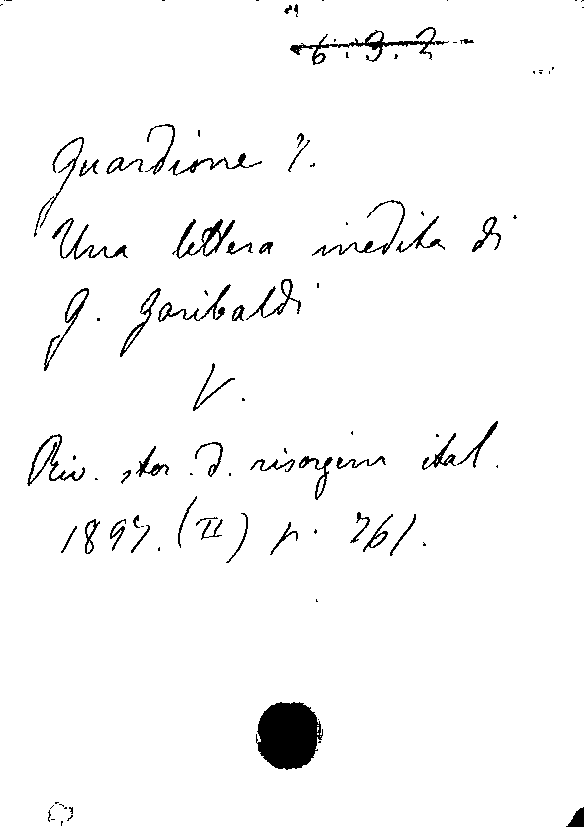 6.9.2
Guardione F.
Una lettera inedita di
G. Garibaldi
V.
Riv. stor. d. risorgim ital.
1897. (II) p. 761.